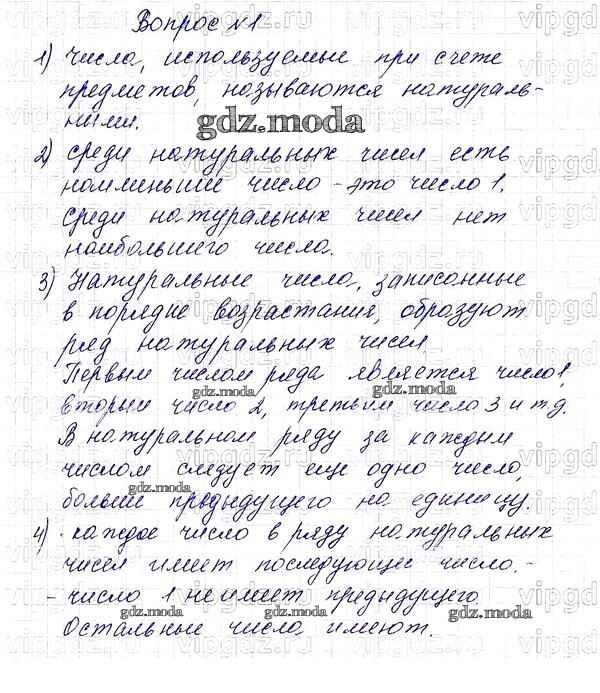 Вопрос №1
1) Числа, используемые при счете
предметов, называются натураль-
ными.
gdz.moda
2) Среди натуральных чисел есть
наименьшие число - это число 1,
среди натуральных чисел нет
наибольшего числа.
3) Натуральные числа, записанные
в порядке возрастания, образуют
ряд натуральных чисел.
Первым числом ряда является число 1,
gdz.moda gdz.moda
вторым число 2, третьим число 3 и т.д.
В натуральном ряду за каждым
числом следует еще одно число,
gdz.moda
больший предыдущего на единицу.
4) · каждое число в ряду натуральных
чисел имеет последующее число. -
- число 1 не имеет предыдущего.
gdz.moda gdz.moda gdz.moda
Остальные числа имеют.
gdz.moda